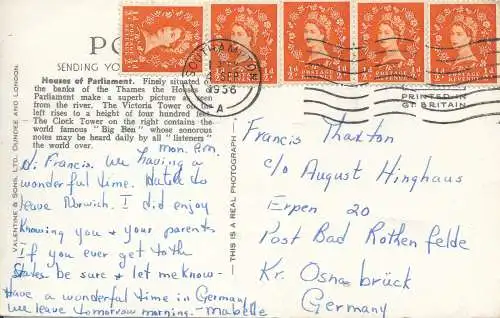 PO
SENDING YO
Houses of Parliament. Finely situated o
the banks of the Thames the Houses o
Parliament make a superb picture as seen
from the river. The Victoria Tower on the
left rises to a height of four hundred feet.
The Clock Tower on the right contains the
world famous "Big Ben" whose sonorous
notes may be heard daily by all "listeners"
the world over.
VALENTINE & SONS, LTD., DUNDEE AND LONDON.
THIS IS A REAL PHOTOGRAPH
SOUTHAMPTON
1956
A
POSTAGE REVENUE
PRINTED IN
GT BRITAIN
mon. P.m.
Hi Francis. We having a
wonderful time. Hated to
leave Norwich. I did enjoy
Knowing you & your parents
If you ever get to the
States be sure & let me know-
Have a wonderful time in Germany
We leave tomorrow morning. - mabelle
Francis Thaxton
c/o August Hinghaus
Erpen 20
Post Bad Rothenfelde
Kr. Osnabrück
Germany